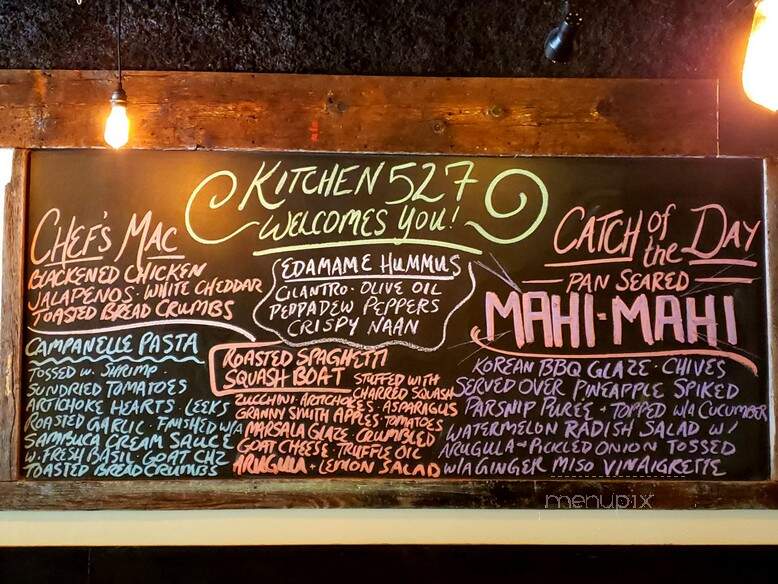 KITCHEN 527
WELCOMES YOU!
CHEF'S MAC
BLACKENED CHICKEN
JALAPENOS · WHITE CHEDDAR
TOASTED BREAD CRUMBS
CAMPANELLE PASTA
TOSSED w. SHRIMP ·
SUNDRIED TOMATOES
ARTICHOKE HEARTS · LEEKS
ROASTED GARLIC · FINISHED W/A
SAMBUCA CREAM SAUCE
w. FRESH BASIL · GOAT CHZ
TOASTED BREADCRUMBS
EDAMAME HUMMUS
CILANTRO · OLIVE OIL
PEPPADEW PEPPERS
CRISPY NAAN
ROASTED SPAGHETTI
SQUASH BOAT STUFFED WITH
CHARRED SQUASH
ZUCCHINI · ARTICHOKES · ASPARAGUS
GRANNY SMITH APPLES · TOMATOES
MARSALA GLAZE · CRUMBLED
GOAT CHEESE · TRUFFLE OIL
ARUGULA + LEMON SALAD
CATCH of the DAY
PAN SEARED
MAHI-MAHI
KOREAN BBQ GLAZE · CHIVES
SERVED OVER PINEAPPLE SPIKED
PARSNIP PUREE + TOPPED W/A CUCUMBER
WATERMELON RADISH SALAD W/
ARUGULA + PICKLED ONION TOSSED
W/A GINGER MISO VINAIGRETTE
menupix